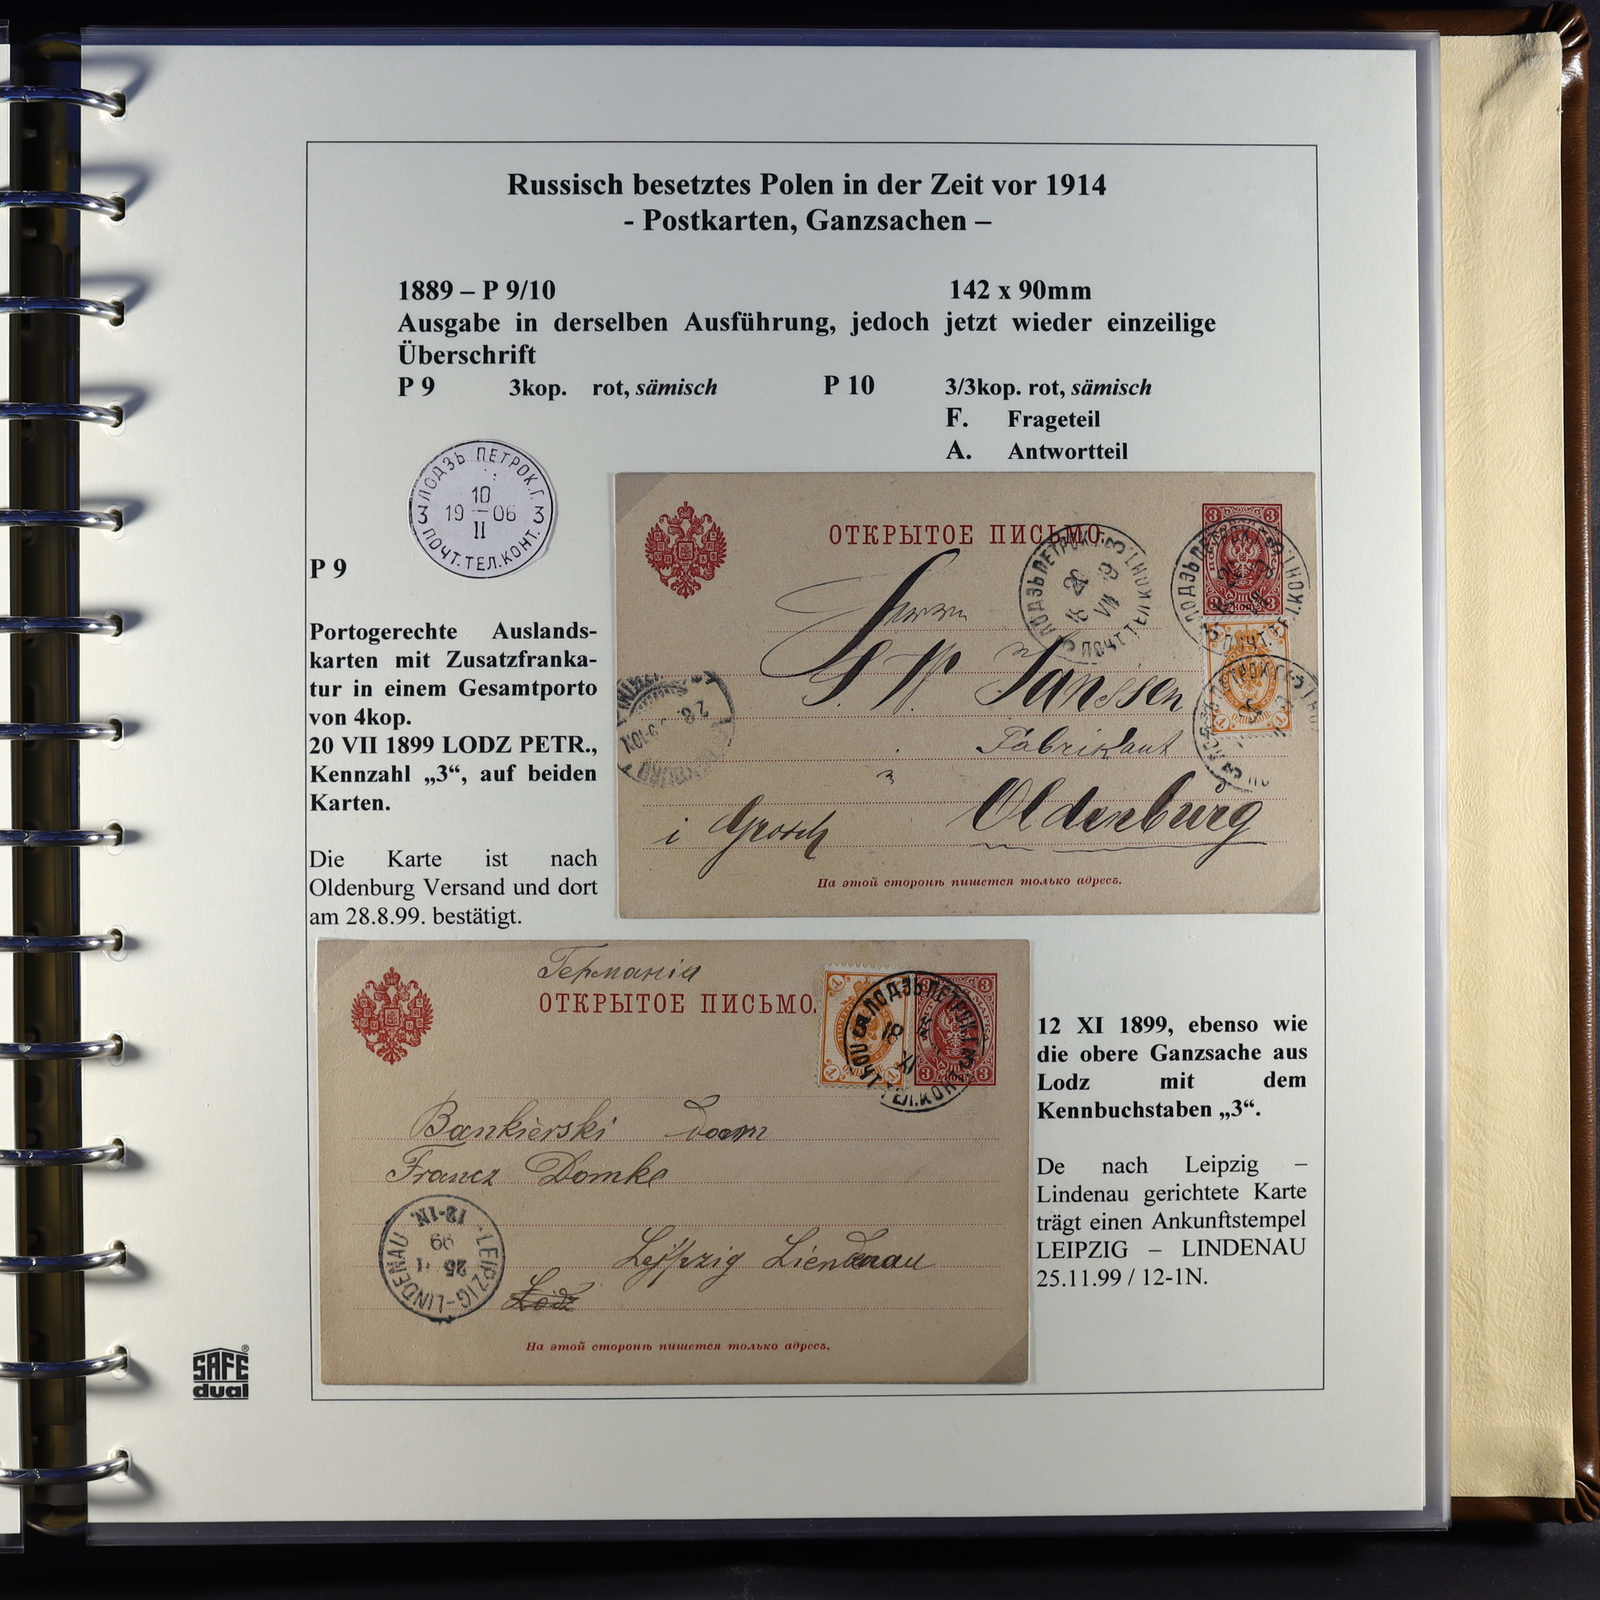 Russisch besetztes Polen in der Zeit vor 1914
- Postkarten, Ganzsachen –
1889 – P 9/10 142 x 90mm
Ausgabe in derselben Ausführung, jedoch jetzt wieder einzeilige
Überschrift
P 9 3kop. rot, sämisch P 10 3/3kop. rot, sämisch
F. Frageteil
A. Antwortteil
ЛОДЗЬ ПЕТРОК.Г.
10
19 06
II
3 3
ПОЧТ.ТЕЛ.КОНТ.
P 9
Portogerechte Auslands-
karten mit Zusatzfranka-
tur in einem Gesamtporto
von 4kop.
20 VII 1899 LODZ PETR.,
Kennzahl „3“, auf beiden
Karten.
Die Karte ist nach
Oldenburg Versand und dort
am 28.8.99. bestätigt.
ОТКРЫТОЕ ПИСЬМО.
Herrn
Janssen
Fabrikant
Oldenburg
i Grosh
На этой сторонѣ пишется только адресъ.
Германія
ОТКРЫТОЕ ПИСЬМО.
Bankierski dom
Francz Domke
Lejpzig Liendenau
Lodz
LEIPZIG-LINDENAU
25 11
99
12-1N.
На этой сторонѣ пишется только адресъ.
12 XI 1899, ebenso wie
die obere Ganzsache aus
Lodz mit dem
Kennbuchstaben „3“.
De nach Leipzig –
Lindenau gerichtete Karte
trägt einen Ankunftstempel
LEIPZIG – LINDENAU
25.11.99 / 12-1N.
SAFE®
dual